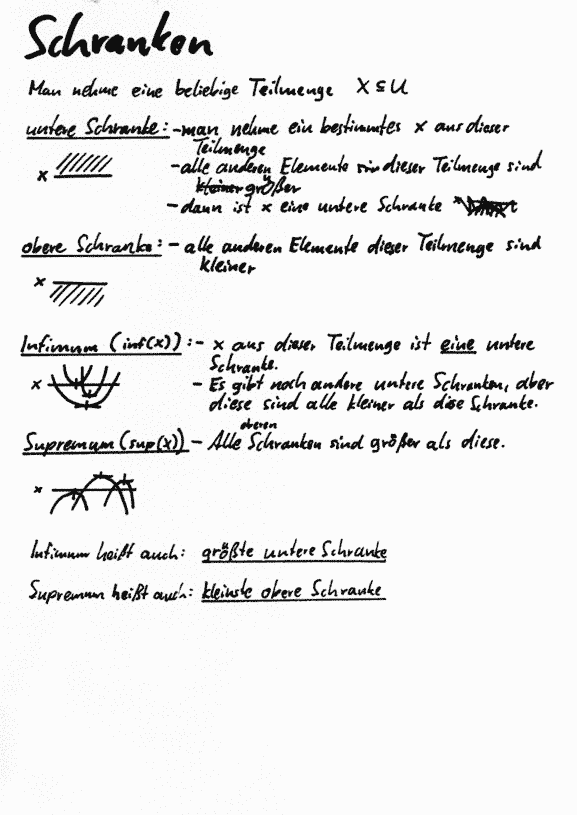 Schranken
Man nehme eine beliebige Teilmenge X ⊆ U
untere Schranke: - man nehme ein bestimmtes x aus dieser
Teilmenge
- alle anderen Elemente dieser Teilmenge sind
kleiner größer
- dann ist x eine untere Schranke
x
obere Schranke: - alle anderen Elemente dieser Teilmenge sind
kleiner
x
Infimum (inf(x)): - x aus dieser Teilmenge ist eine untere
Schranke.
x
- Es gibt noch andere untere Schranken, aber
diese sind alle kleiner als diese Schranke.
Supremum (sup(x)) - Alle oberen Schranken sind größer als diese.
x
Infimum heißt auch: größte untere Schranke
Supremum heißt auch: kleinste obere Schranke